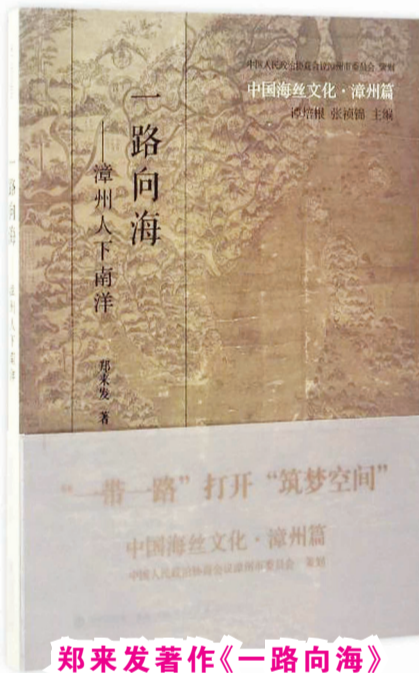 中国人民政治协商会议漳州市委员会 策划
中国海丝文化·漳州篇
谭培根 张祯锦 主编
一路向海
——漳州人下南洋
郑来发 著
一路向海
漳州人下南洋
“一带一路”打开“筑梦空间”
中国海丝文化·漳州篇
中国人民政治协商会议漳州市委员会 策划
郑来发著作《一路向海》